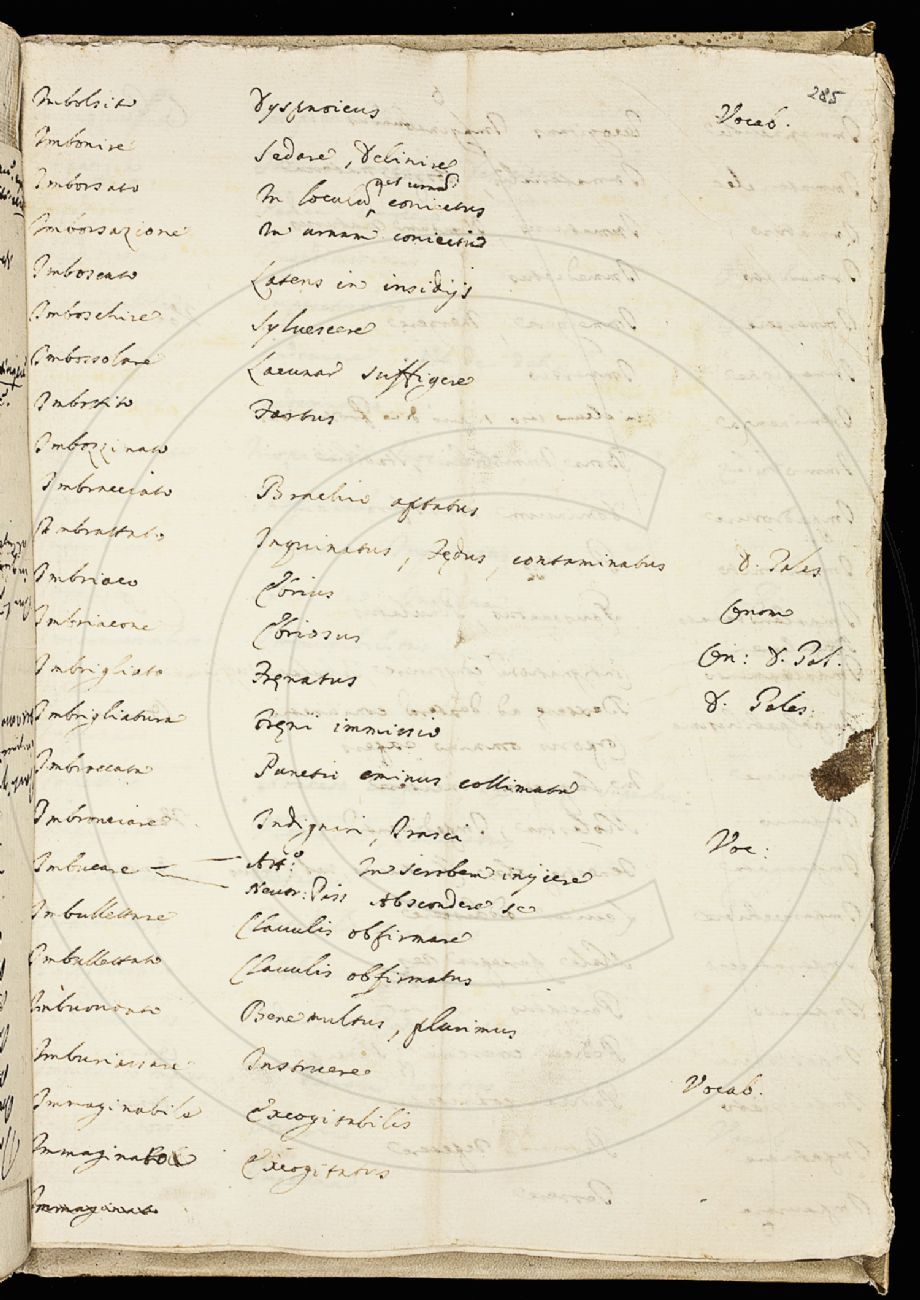 285
Imbolsito Dyspnoicus Vocab.
Imbonire Sedare, Delinire
Imborsato In loculũ vel urnã conièctus
Imborsazione In urnam coniectio
Imboscato Latens in insidijs
Imboschire Sylvescere
Imbossolare Lacunar suffigere
Imbottito Fartus
Imbozzinato
Imbracciato Brachio aptatus
Imbrattato Inquinatus, Fędus, contaminatus D. Pales
Imbriaco Ebrius Cnom
Imbriacone Ebriosus Cn: D. Pal.
Imbrigliato Fręnatus D. Pales.
Imbrigliatura Fręni immissio
Imbroccata Punctio eminus collimata
Imbronciare Indignari, Irasci. Voc:
Imbucare Att.º In scrobem inijcere
Neutr: Pass Abscondere se
Imbullettare Clavulis obfirmare
Imbullettato Clavulis obfirmatus
Imbuonato Bene multus, plurimus
Imburiassare Instruere Vocab.
Immaginabile Excogitabilis
Immaginato Excogitatus